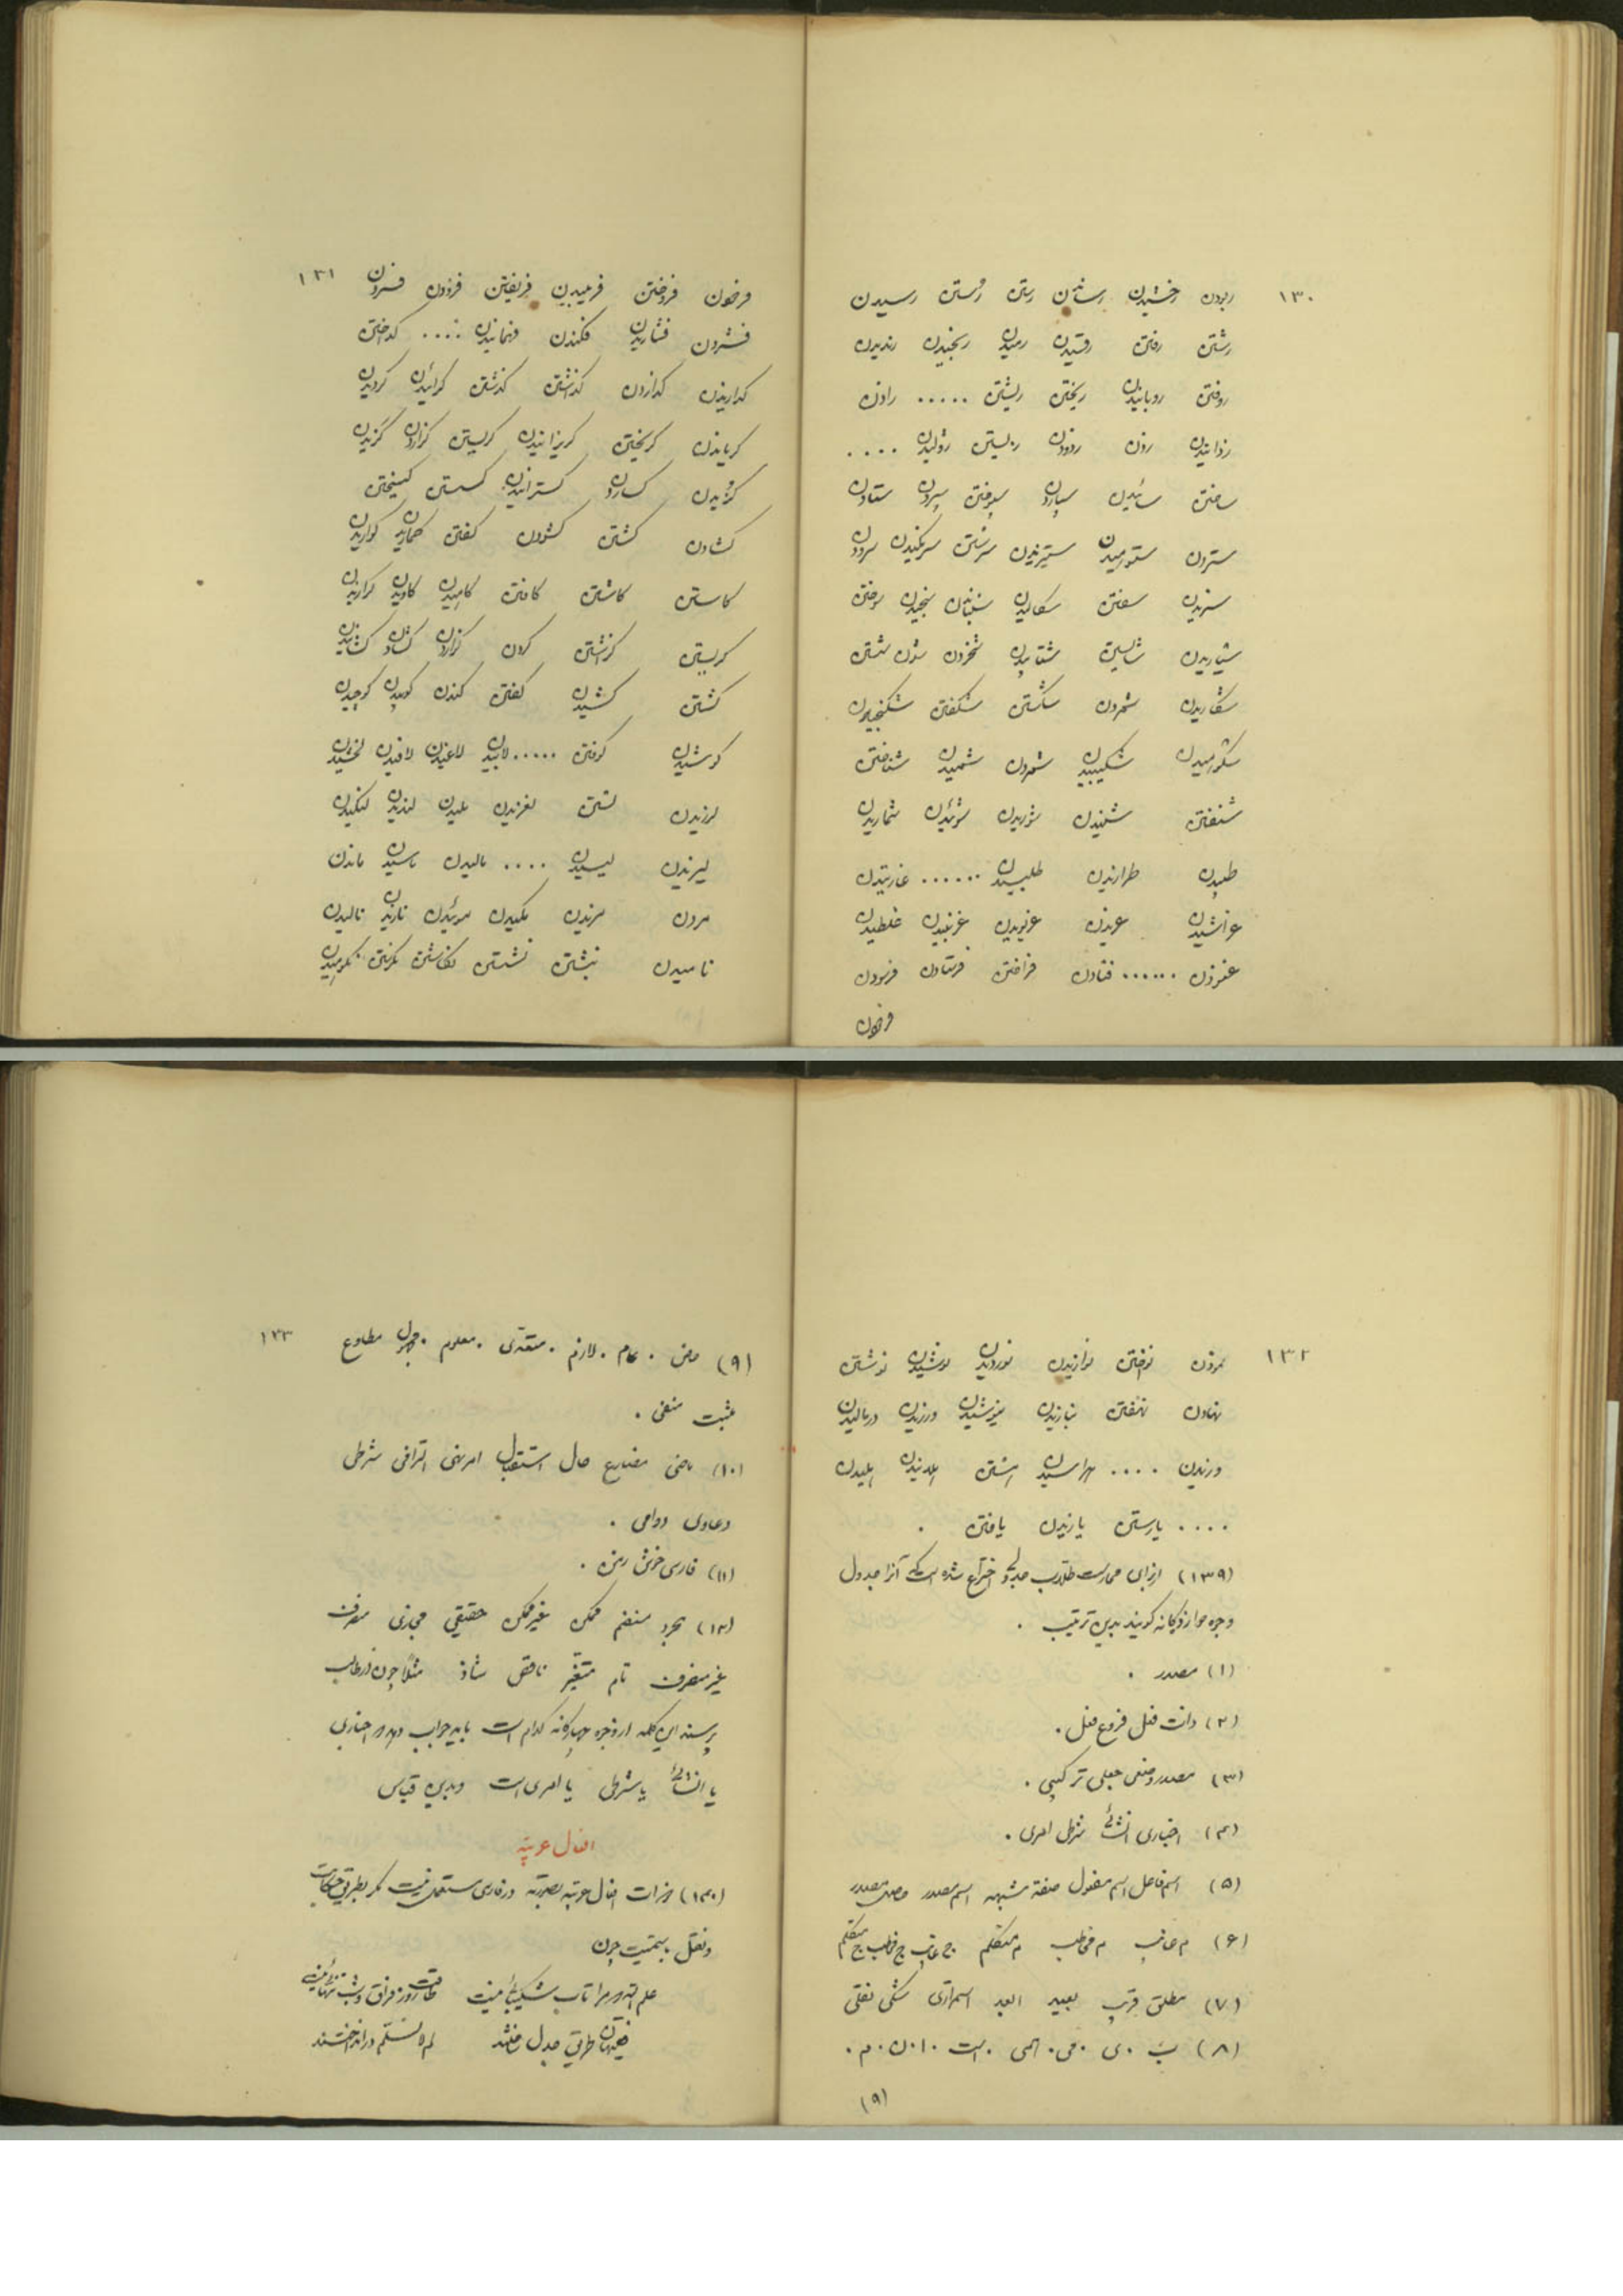 ۱۳۰
ربودن رخشیدن رساندن رستن رُستن رسیدن
رشتن رفتن رقصیدن رمیدن رنجیدن رندیدن
روفتن رویانیدن ریختن ریشتن ..... زادن
زدن زدودن زیستن ژولیدن ....
ساختن سائیدن سپاردن سپوختن سپردن ستادن
ستردن ستوهیدن ستیزیدن سرشتن سرودن
سزیدن سفتن سگالیدن سنجیدن سوختن
شاریدن شایستن شتابیدن شخودن شدن شستن
شکاریدن شمردن شکستن شکفتن شکنجیدن
شکوهیدن شکیبیدن شمردن شمیدن شناختن
شنفتن شنیدن شوریدن شوئیدن شماریدن
طپیدن طرازیدن طلبیدن ...... غارتیدن
خراشیدن غریدن غریویدن غرنبیدن غلطیدن
غنودن ...... فتادن فراختن فرستادن فرسودن
فرمودن
۱۳۱
فروختن فهمیدن فریفتن فزودن فسردن
فشردن فشاریدن فکندن فهمانیدن .... گداختن
گدازیدن گذاردن گذاشتن گذشتن گرائیدن گرویدن
گریاندن گریختن گریزانیدن گریستن گزاردن گزیدن
گزیدن گساردن گسترانیدن گسستن گسیختن
گشادن گشتن گشودن گفتن گماریدن گواریدن
کاستن کاشتن کافتن کاهیدن کاویدن
گریستن کردن
کشتن کشیدن کفتن کندن کوبیدن کوچیدن
کوشیدن کوفتن ..... لابیدن لاغیدن لافیدن لخشیدن
لرزیدن لشتن لغزیدن لمیدن لندیدن لنگیدن
لیزیدن لیسیدن .... مالیدن ماسیدن ماندن
مردن مزیدن مکیدن موئیدن نازیدن نالیدن
نامیدن نبشتن نشستن نگاشتن نگرستن نکوهیدن
۱۳۲
نمودن نواختن نوازیدن نوردیدن نوشیدن نوشتن
نهادن نهفتن نیازیدن نیوشیدن ورزیدن ورمالیدن
وزیدن .... هراسیدن هشتن
.... یارستن یازیدن یافتن .
(۱۳۹) از برای ممارست طلاب جدولی اختراع شده است که آنرا جدول
وجوه دوازده‌گانه گویند بدین ترتیب .
(۱) مصدر .
(۲) ذات فعل فروع فعل .
(۳) مصدر وضعی جعلی ترکیبی .
(۴) اخباری انشائی شرطی امری .
(۵) اسم فاعل اسم مفعول صفة مشبهه اسم مصدر حاصل مصدر
(۶) م غایب م مخاطب م متکلم ج غایب ج مخاطب ج متکلم
(۷) مطلق قریب بعید ابعد استمراری شکی نقلی
(۸) ب . ی . می . همی . است . ا . ن . م .
(۹)
۱۳۳
(۹) خاص . عام . لازم . متعدّی . معلوم . مجهول مطاوع
مثبت منفی .
(۱۰) ماضی مضارع حال استقبال امر نهی التزامی شرطی
دعاوی دوامی .
(۱۱) فارسی .
(۱۲) مجرد منضم ممکن غیرممکن حقیقی مجازی متصرف
غیر متصرف تام متغیّر ناقص شاذ مثلاً چون از طالب
پرسند این کلمه از وجوه چهارگانه کدام است باید جواب دهد اخباری
یا انشائی یا شرطی یا امری است و بدین قیاس
افعال عربیّه
(۱۴۰) افعال عربیّه بصورته در فارسی مستعمل نیست مگر بطریق حکایت
و نقل چون
علم الله مرا تاب شکیبائی نیست طاقت روز فراق و شب تنهائی نیست
فقیهان طریق جدل ساختند لم و لا نسلّم در انداختند